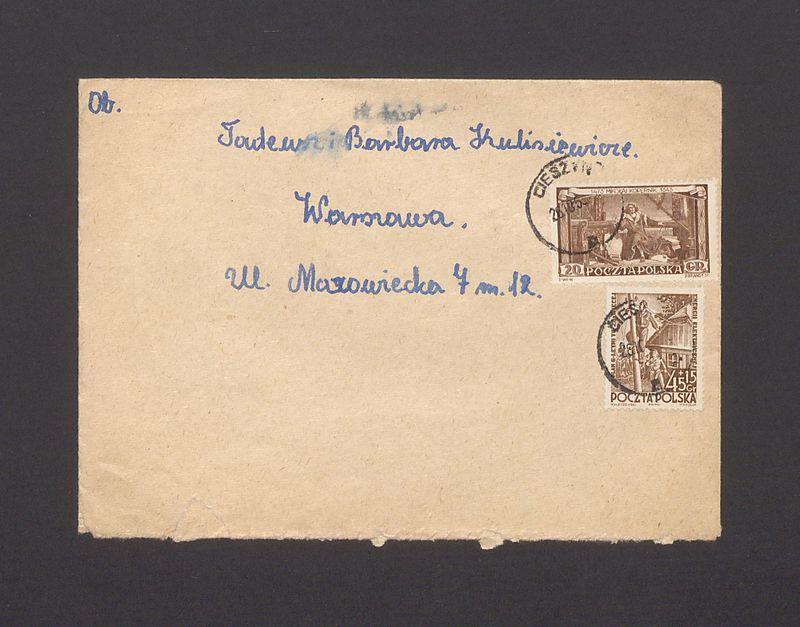 Ob.
Tadeusz i Barbara Kulisiewicze.
Warszawa.
Ul. Mazowiecka 7 m. 12.
CIESZYN
A
1473 MIKOŁAJ KOPERNIK 1543
20 POCZTA POLSKA GR.
CIESZ
A
45+15 Gr
POCZTA POLSKA